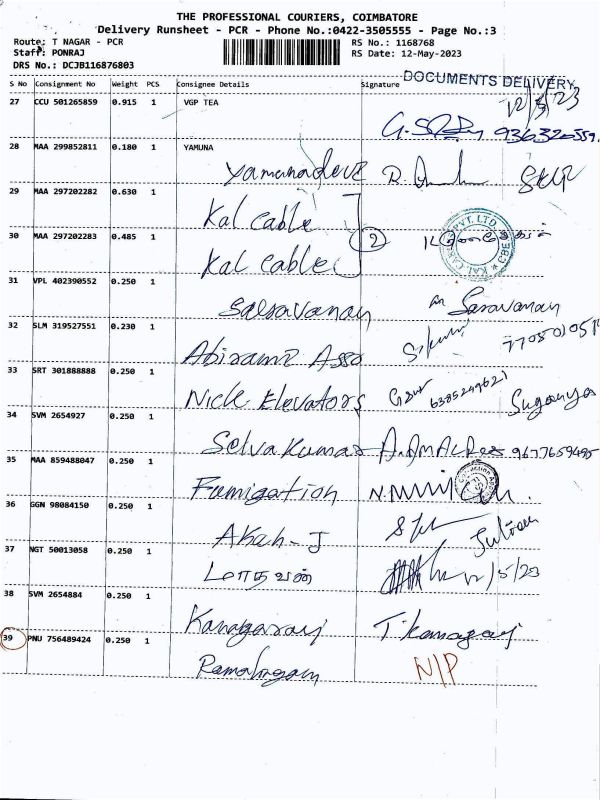 THE PROFESSIONAL COURIERS, COIMBATORE
Delivery Runsheet - PCR - Phone No.:0422-3505555 - Page No.:3
Route: T NAGAR - PCR
RS No.: 1168768
Staff: PONRAJ
RS Date: 12-May-2023
DRS No.: DCJB116876803
S No Consignment No Weight PCS Consignee Details Signature
DOCUMENTS DELIVERY
12/5/23
27 CCU 501265859 0.915 1 VGP TEA
28 MAA 299852811 0.180 1 YAMUNA
Yamunadevi
29 MAA 297202282 0.630 1
Kal Cable
30 MAA 297202283 0.485 1
Kal Cable
2
PVT. LTD
CBE
31 VPL 402390552 0.250 1
Salsavanan
Saravanan
32 SLM 319527551 0.230 1
Abirami Asso
33 SRT 301888888 0.250 1
Nick Elevators
6385249621
Suganya
34 SVM 2654927 0.250 1
Selva Kumar
9677659495
35 MAA 859488047 0.250 1
Fumigation
36 GGN 98084150 0.250 1
Akah-J
37 NGT 50013058 0.250 1
மாதவன்
12/5/23
38 SVM 2654884 0.250 1
Kanagaraj
T. Kanagaraj
39 PNU 756489424 0.250 1
Ramalingam
N/P